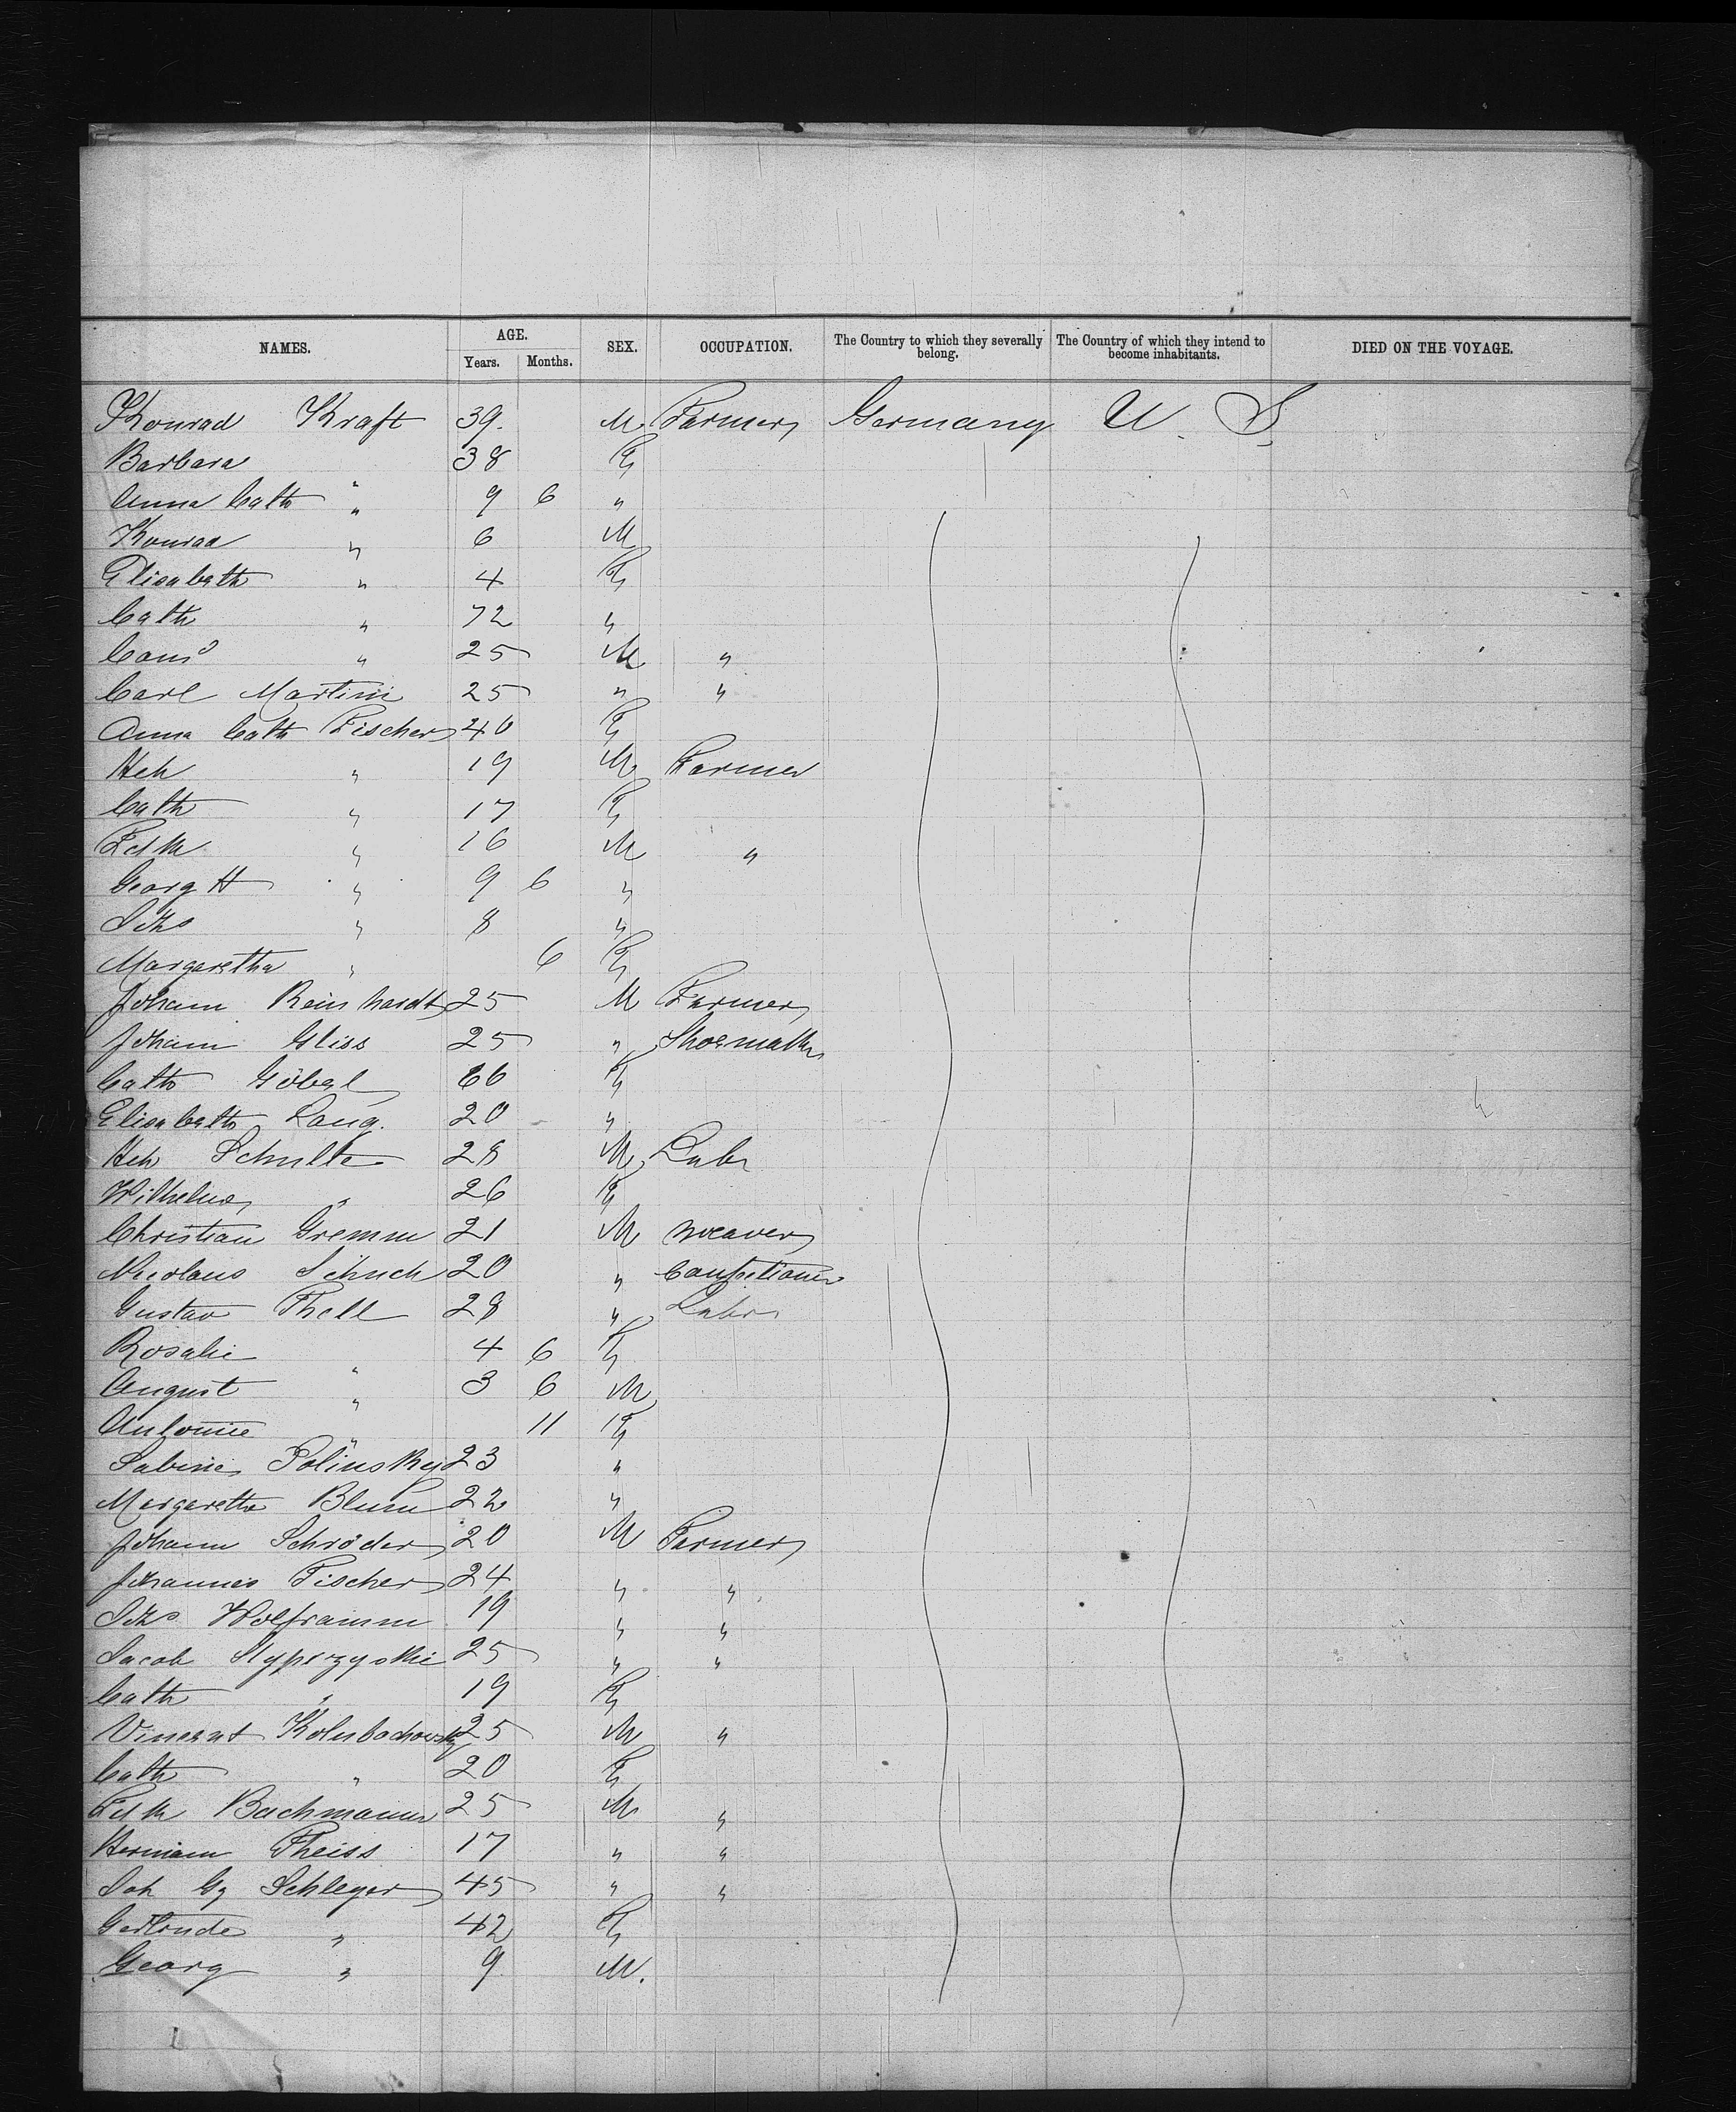 NAMES. AGE. SEX. OCCUPATION. The Country to which they severally belong. The Country of which they intend to become inhabitants. DIED ON THE VOYAGE.
Years. Months.
Konrad Kraft 39. M. Farmer Germany U. S.
Barbara " 38 F
Anna Cath " 9 6 "
Konrad " 6 M
Elisabeth " 4 F
Cath " 72 "
" 25 M "
Carl Martini 25 " "
Anna Cath Fischer 40 F
Hch " 19 M Farmer
Cath " 17 F
" 16 M "
Georg H " 9 6 "
" 8 "
Margaretha " 6 F
Johann Reinhardt 25 M Farmer
Johann Gliss 25 " Shoemaker
Cath Göbel 66 F
Elisabeth Lang. 20 "
Hch Schulte 28 M Labr
Wilhelm " 26 F
Christian Gremm 21 M weaver
Nicolaus Schuch 20 "
Gustav Thell 28 " Labr
Rosalie " 4 6 F
August " 3 6 M
Antonie " 11 F
Sabine Polinsky 23 "
Margaretha Blum 22 "
Johann Schröder 20 M Farmer
Johannes Fischer 24 " "
Wolframm 19 " "
Jacob 25 " "
Cath " 19 F
Vincent 25 M "
Cath " 20 F
Bachmann 25 M "
Hermann Theiss 17 " "
Joh Gg Schleyer 45 " "
Gertrude " 42 F
Georg " 9 M.